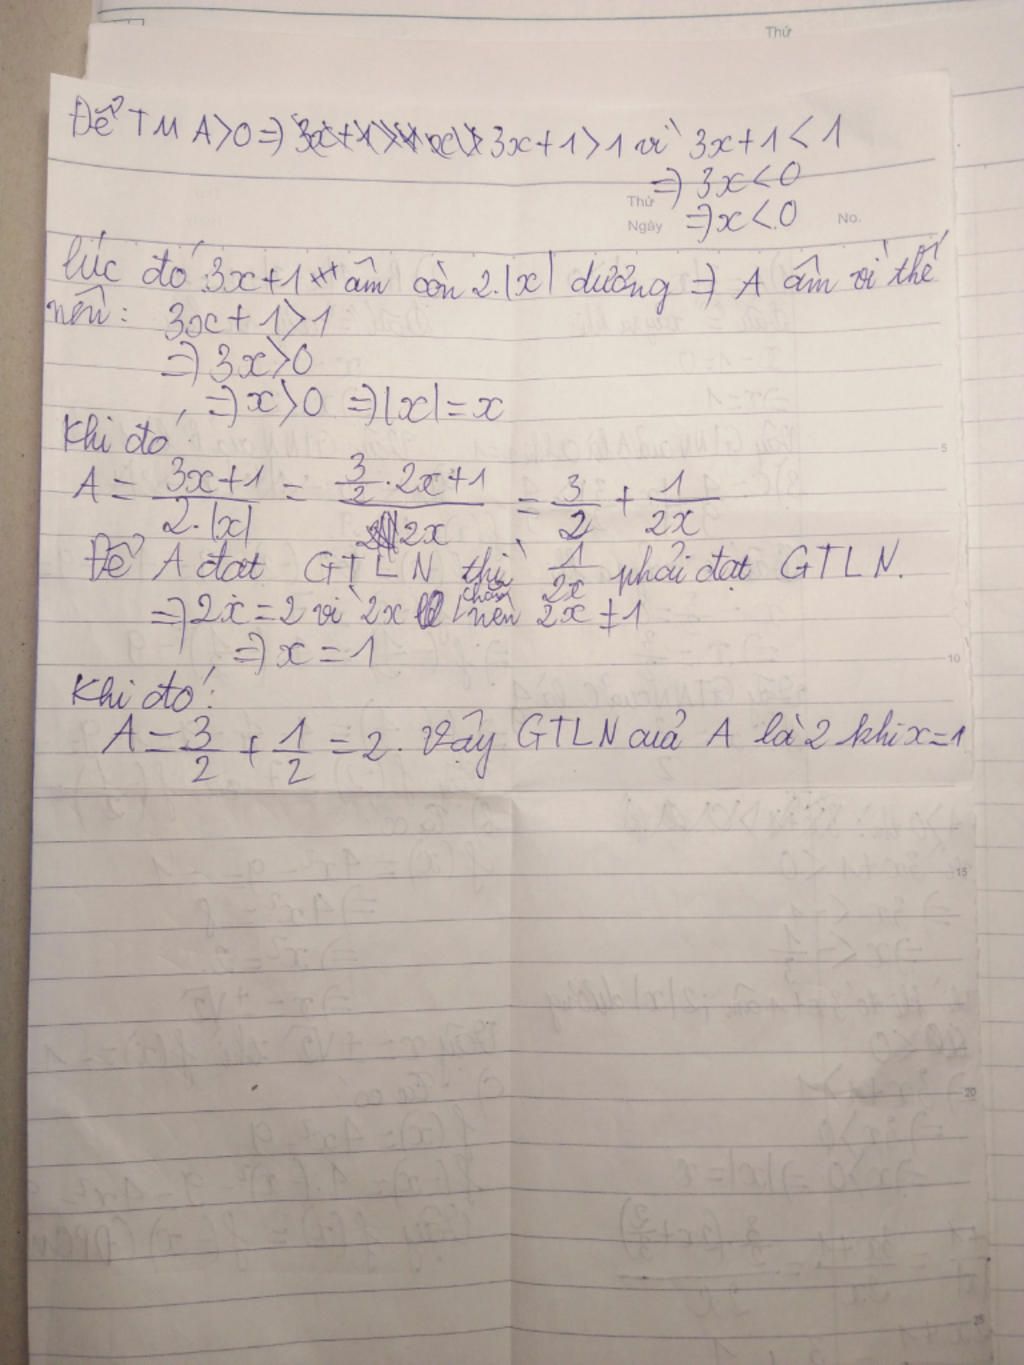 Thứ
Để TM A>0 => 3x+1>1 vì 3x+1<1
=> 3x<0
Thứ
Ngày => x<0 No.
lúc đó 3x+1 âm còn 2.|x| dương => A âm vì thế
nên: 3x+1>1
=> 3x>0
=> x>0 => |x|=x
Khi đó
A = \frac{3x+1}{2.|x|} = \frac{\frac{3}{2}.2x+1}{2x} = \frac{3}{2} + \frac{1}{2x}
Để A đạt GTLN thì \frac{1}{2x} phải đạt GTLN.
=> 2x=2 vì 2x chẵn nên 2x ≠ 1
=> x=1
Khi đó:
A = \frac{3}{2} + \frac{1}{2} = 2. Vậy GTLN của A là 2 khi x=1
5
10
15
20
25